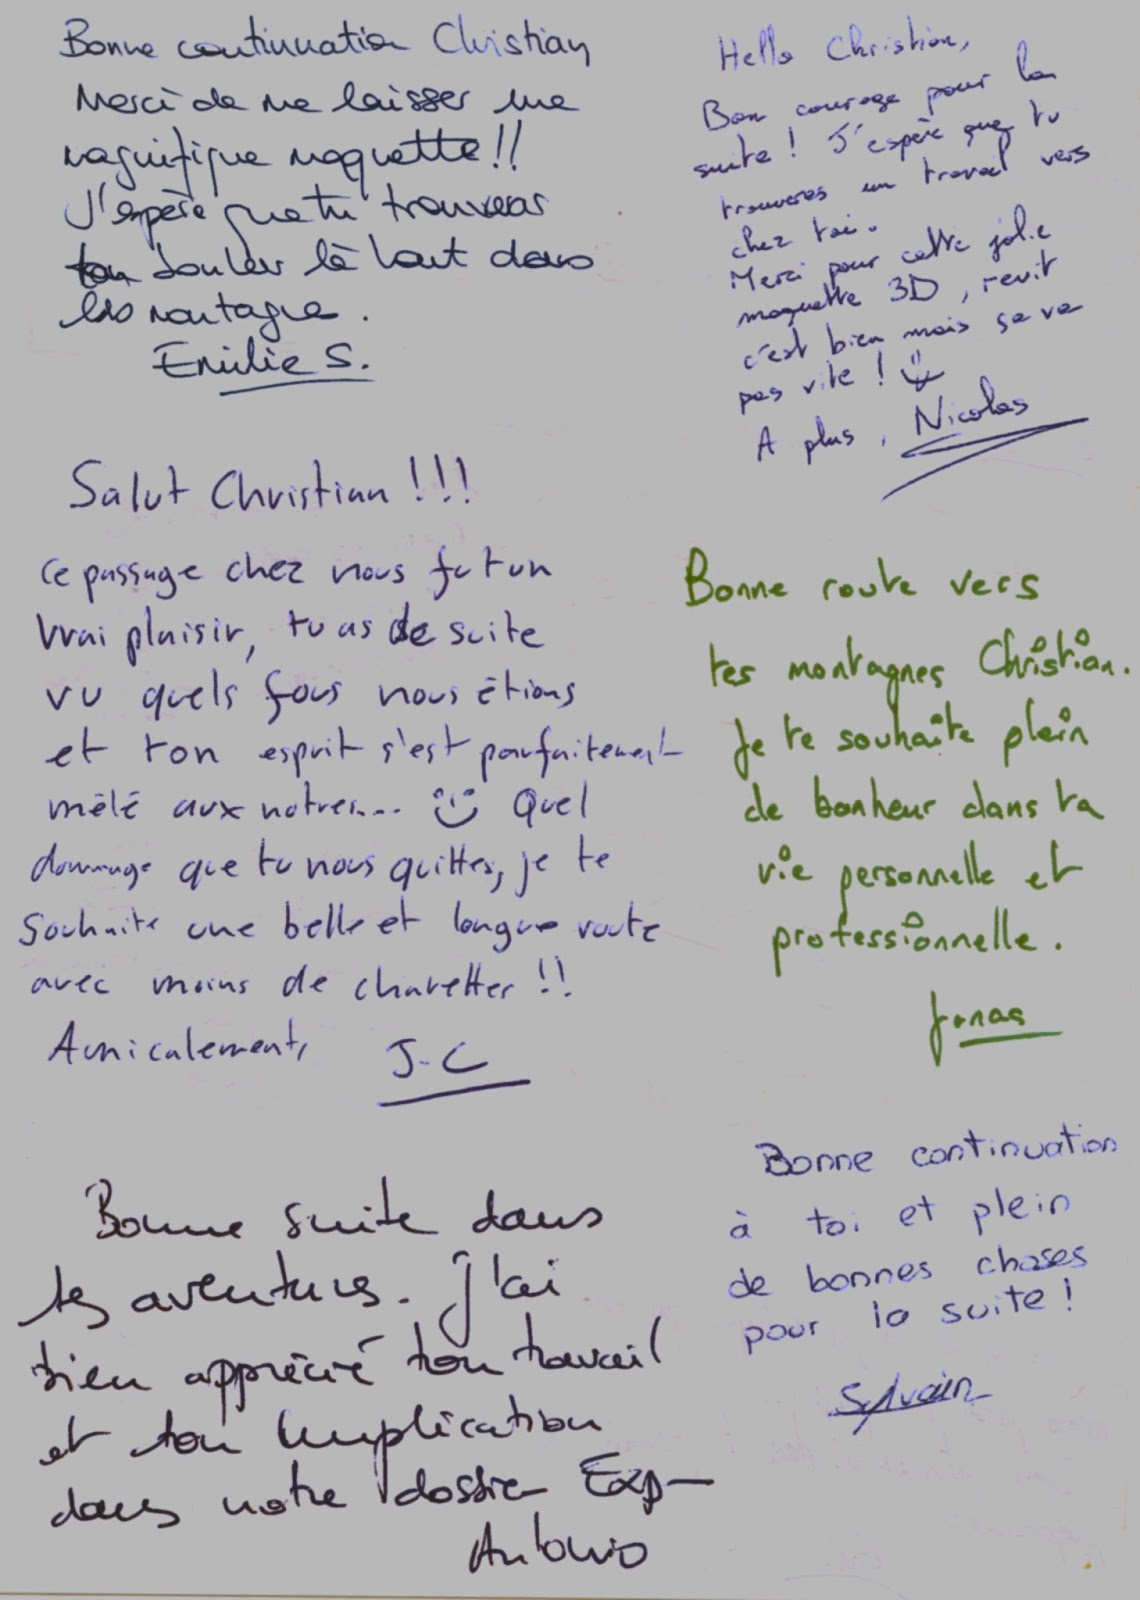 Bonne continuation Christian
Merci de me laisser une
magnifique maquette!!
J'espère que tu trouveras
ton bonheur là haut dans
les montagne.
Emilie S.
Hello Christian,
Bon courage pour la
suite ! J'espère que tu
trouveras un travail vers
chez toi.
Merci pour cette jolie
maquette 3D, revit
c'est bien mais sa va
pas vite !
A plus, Nicolas
Salut Christian !!!
Ce passage chez nous fut un
vrai plaisir, tu as de suite
vu quels fous nous étions
et ton esprit s'est parfaitement
mêlé aux notres... Quel
dommage que tu nous quittes, je te
souhaite une belle et longue route
avec moins de charettes !!
Amicalement,
J-C
Bonne route vers
tes montagnes Christian.
Je te souhaite plein
de bonheur dans ta
vie personnelle et
professionnelle.
Jonas
Bonne suite dans
tes aventures. J'ai
bien apprécié ton travail
et ton implication
dans notre dossier Exp
Antonio
Bonne continuation
à toi et plein
de bonnes choses
pour la suite !
Sylvain